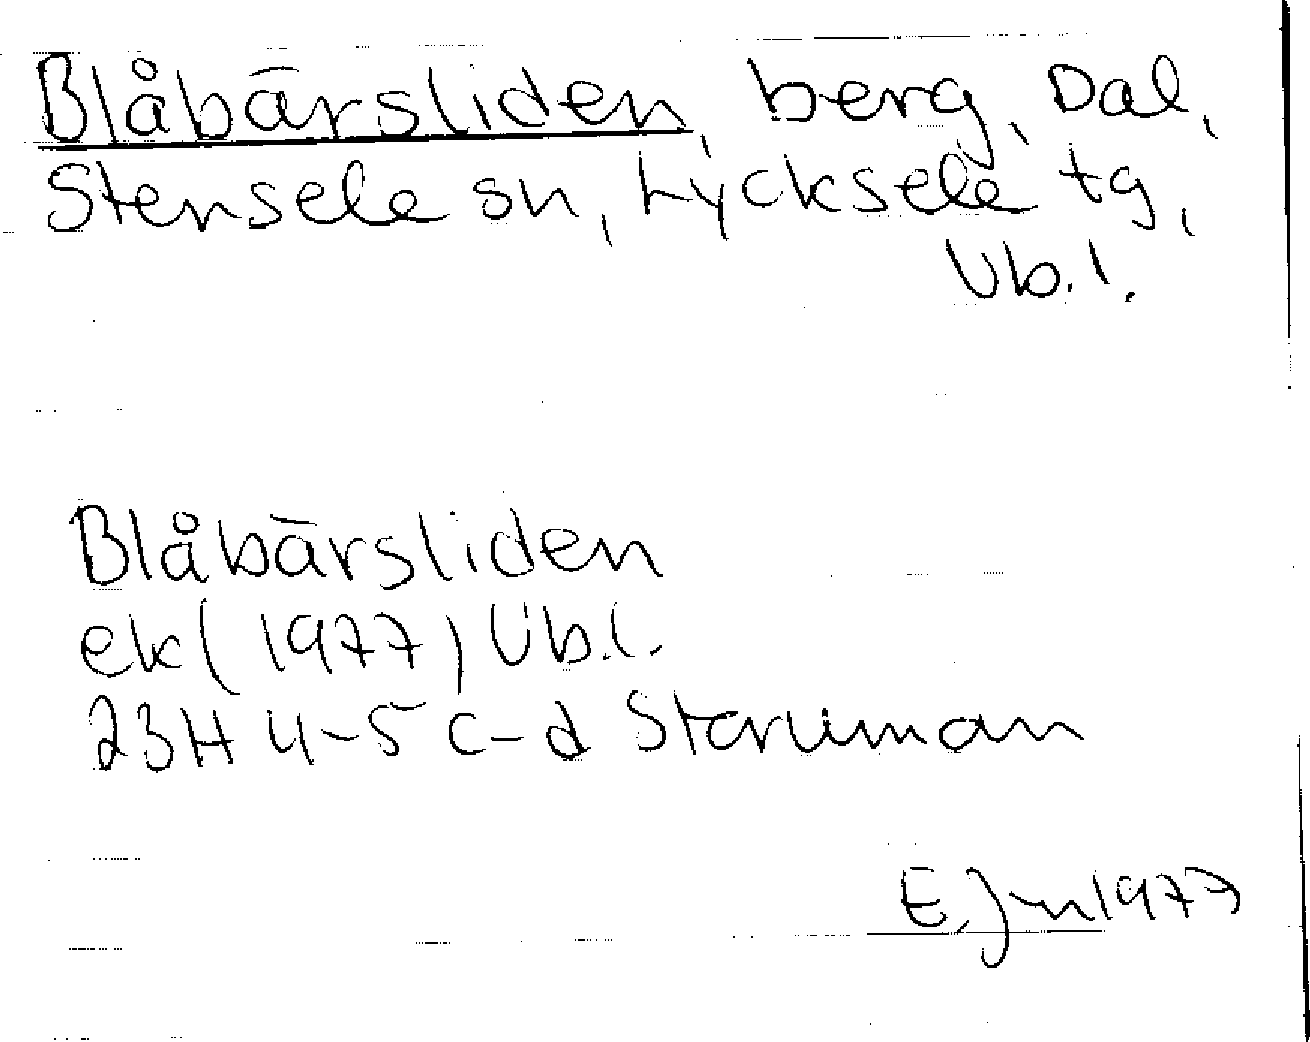 Blåbärsliden, berg, Dal,
Stensele sn, Lycksele tg,
Vb.l.
Blåbärsliden
ek (1977) Vb.l.
23H 4-5 c-d Storuman
E. Jn 1977